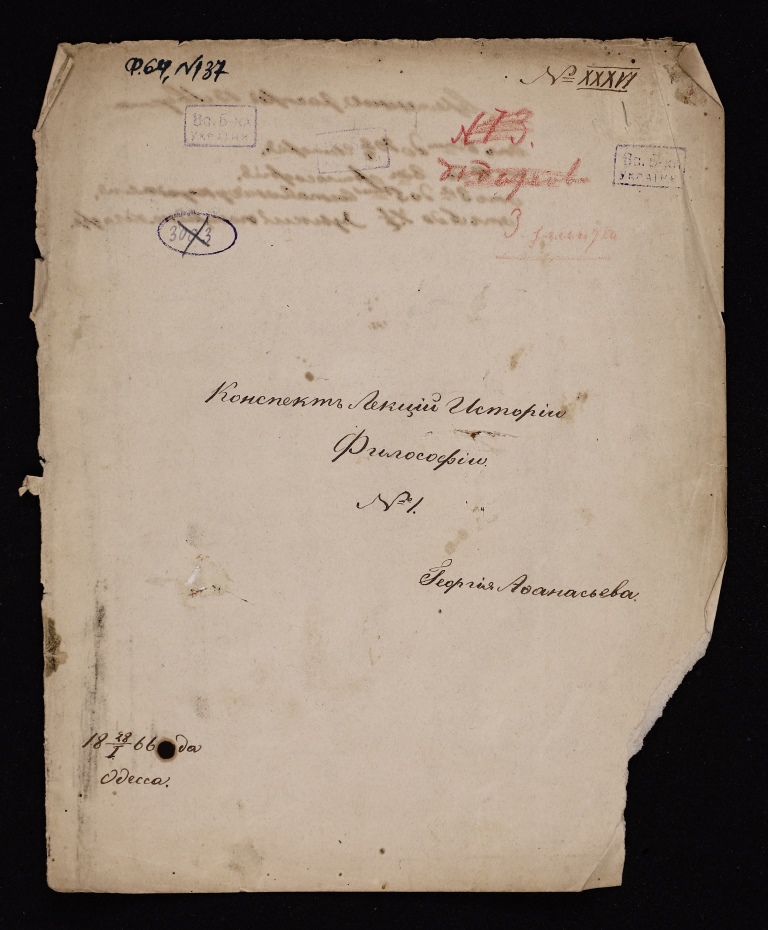 Ф.64, №137
№ XXXVI
Вс. Б-ка
УКРАЇНИ
№73.
Вс. Б-ка
УКРАЇНИ
3
Конспектъ Лекцій Исторіи
Философіи.
№1.
Георгія Аѳанасьева.
18 28/I 66 да
Одесса.